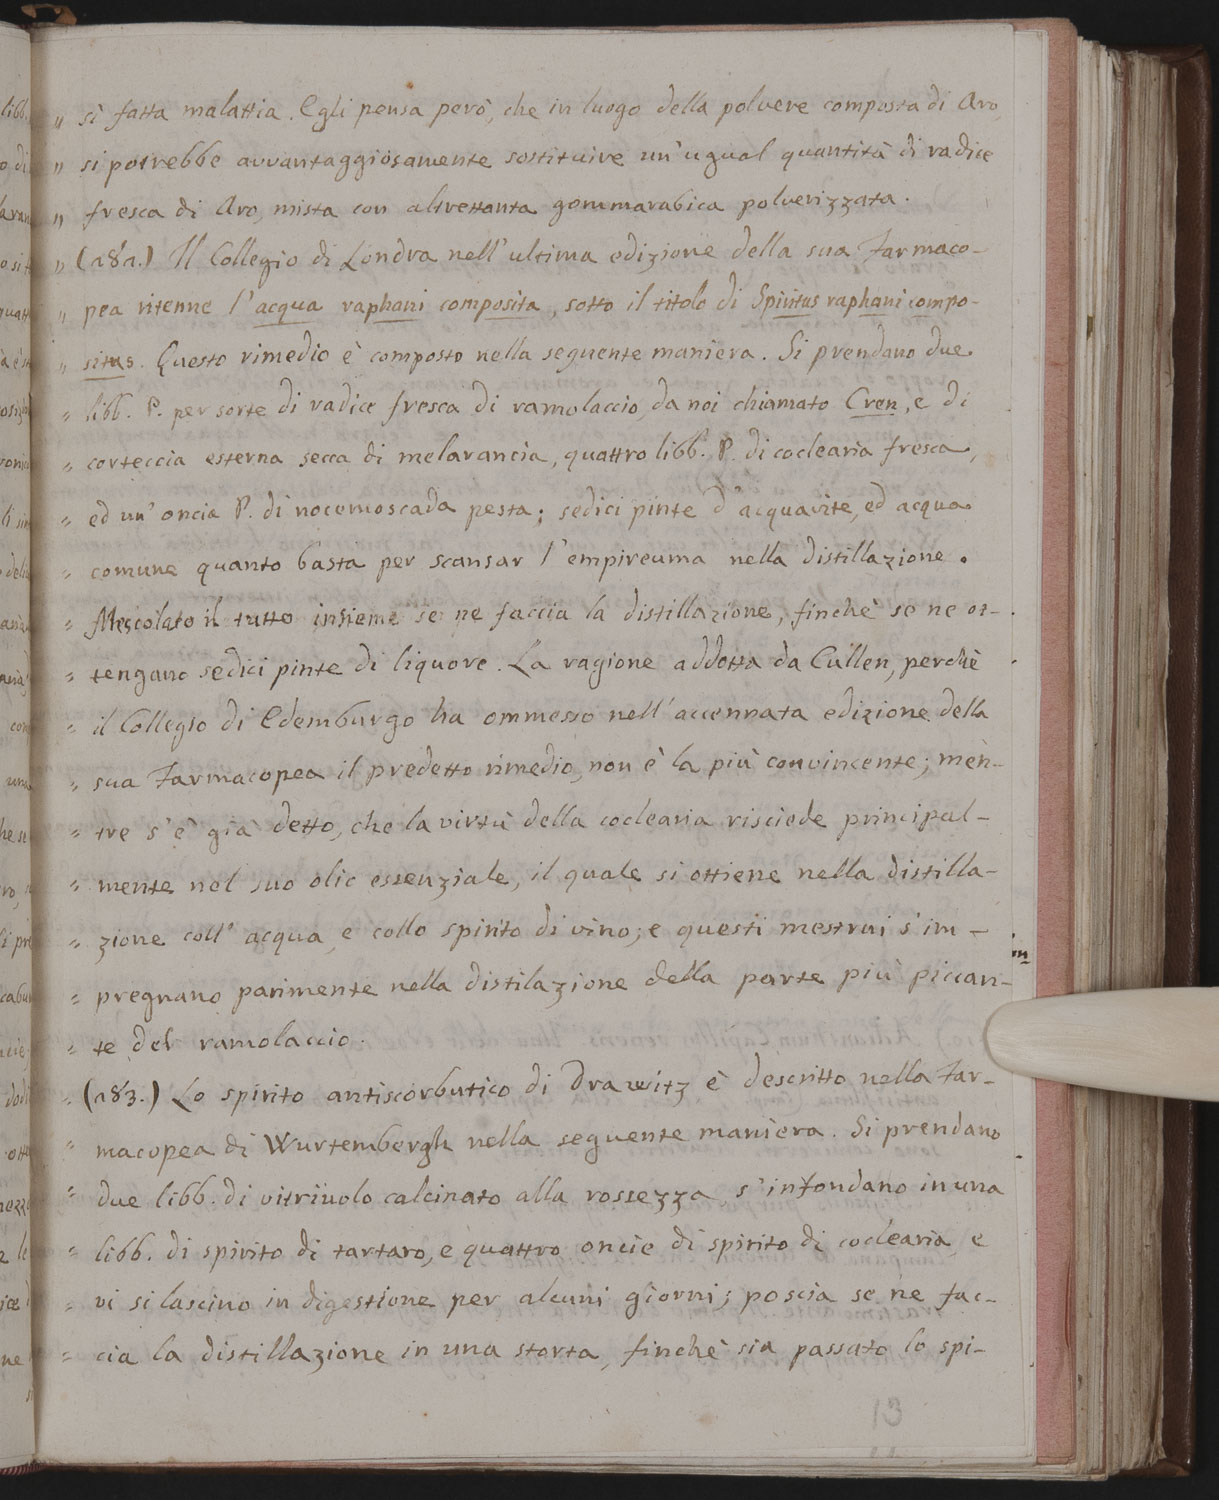 „ sì fatta malattia. Egli pensa però, che in luogo della polvere composta di Aro,
„ si potrebbe avvantaggiosamente sostituire un'ugual quantità di radice
„ fresca di Aro, mista con altrettanta gommarabica polverizzata.
„ (282.) Il Collegio di Londra nell'ultima edizione della sua Farmaco-
„ pea ritenne l'acqua raphani composita, sotto il titolo di Spiritus raphani compo-
„ situs. Questo rimedio è composto nella seguente maniera. Si prendano due
„ libb. P. per sorte di radice fresca di ramolaccio, da noi chiamato Cren, e di
„ corteccia esterna secca di melarancia, quattro libb. P. di coclearia fresca,
„ ed un'oncia P. di nocemoscada pesta; sedici pinte d'acquavite, ed acqua
„ comune quanto basta per scansar l'empireuma nella distillazione.
„ Mescolato il tutto insieme se ne faccia la distillazione, finchè se ne ot-
„ tengano sedici pinte di liquore. La ragione addotta da Cullen, perchè
„ il Collegio di Edemburgo ha ommesso nell'accennata edizione della
„ sua Farmacopea il predetto rimedio, non è la più convincente; men-
„ tre s'è già detto, che la virtù della coclearia risciede principal-
„ mente nel suo olio essenziale, il quale si ottiene nella distilla-
„ zione coll'acqua, e collo spirito di vino; e questi mestrui s'im-
„ pregnano parimente nella distilazione della parte più piccan-
„ te del ramolaccio.
„ (283.) Lo spirito antiscorbutico di Drawitz è descritto nella Far-
„ macopea di Wurtembergh nella seguente maniera. Si prendano
„ due libb. di vitriuolo calcinato alla rossezza s'infondano in una
„ libb. di spirito di tartaro, e quattro oncie di spirito di coclearia, e
„ vi si lascino in digestione per alcuni giorni; poscia se ne fac-
„ cia la distillazione in una storta, finchè sia passato lo spi-